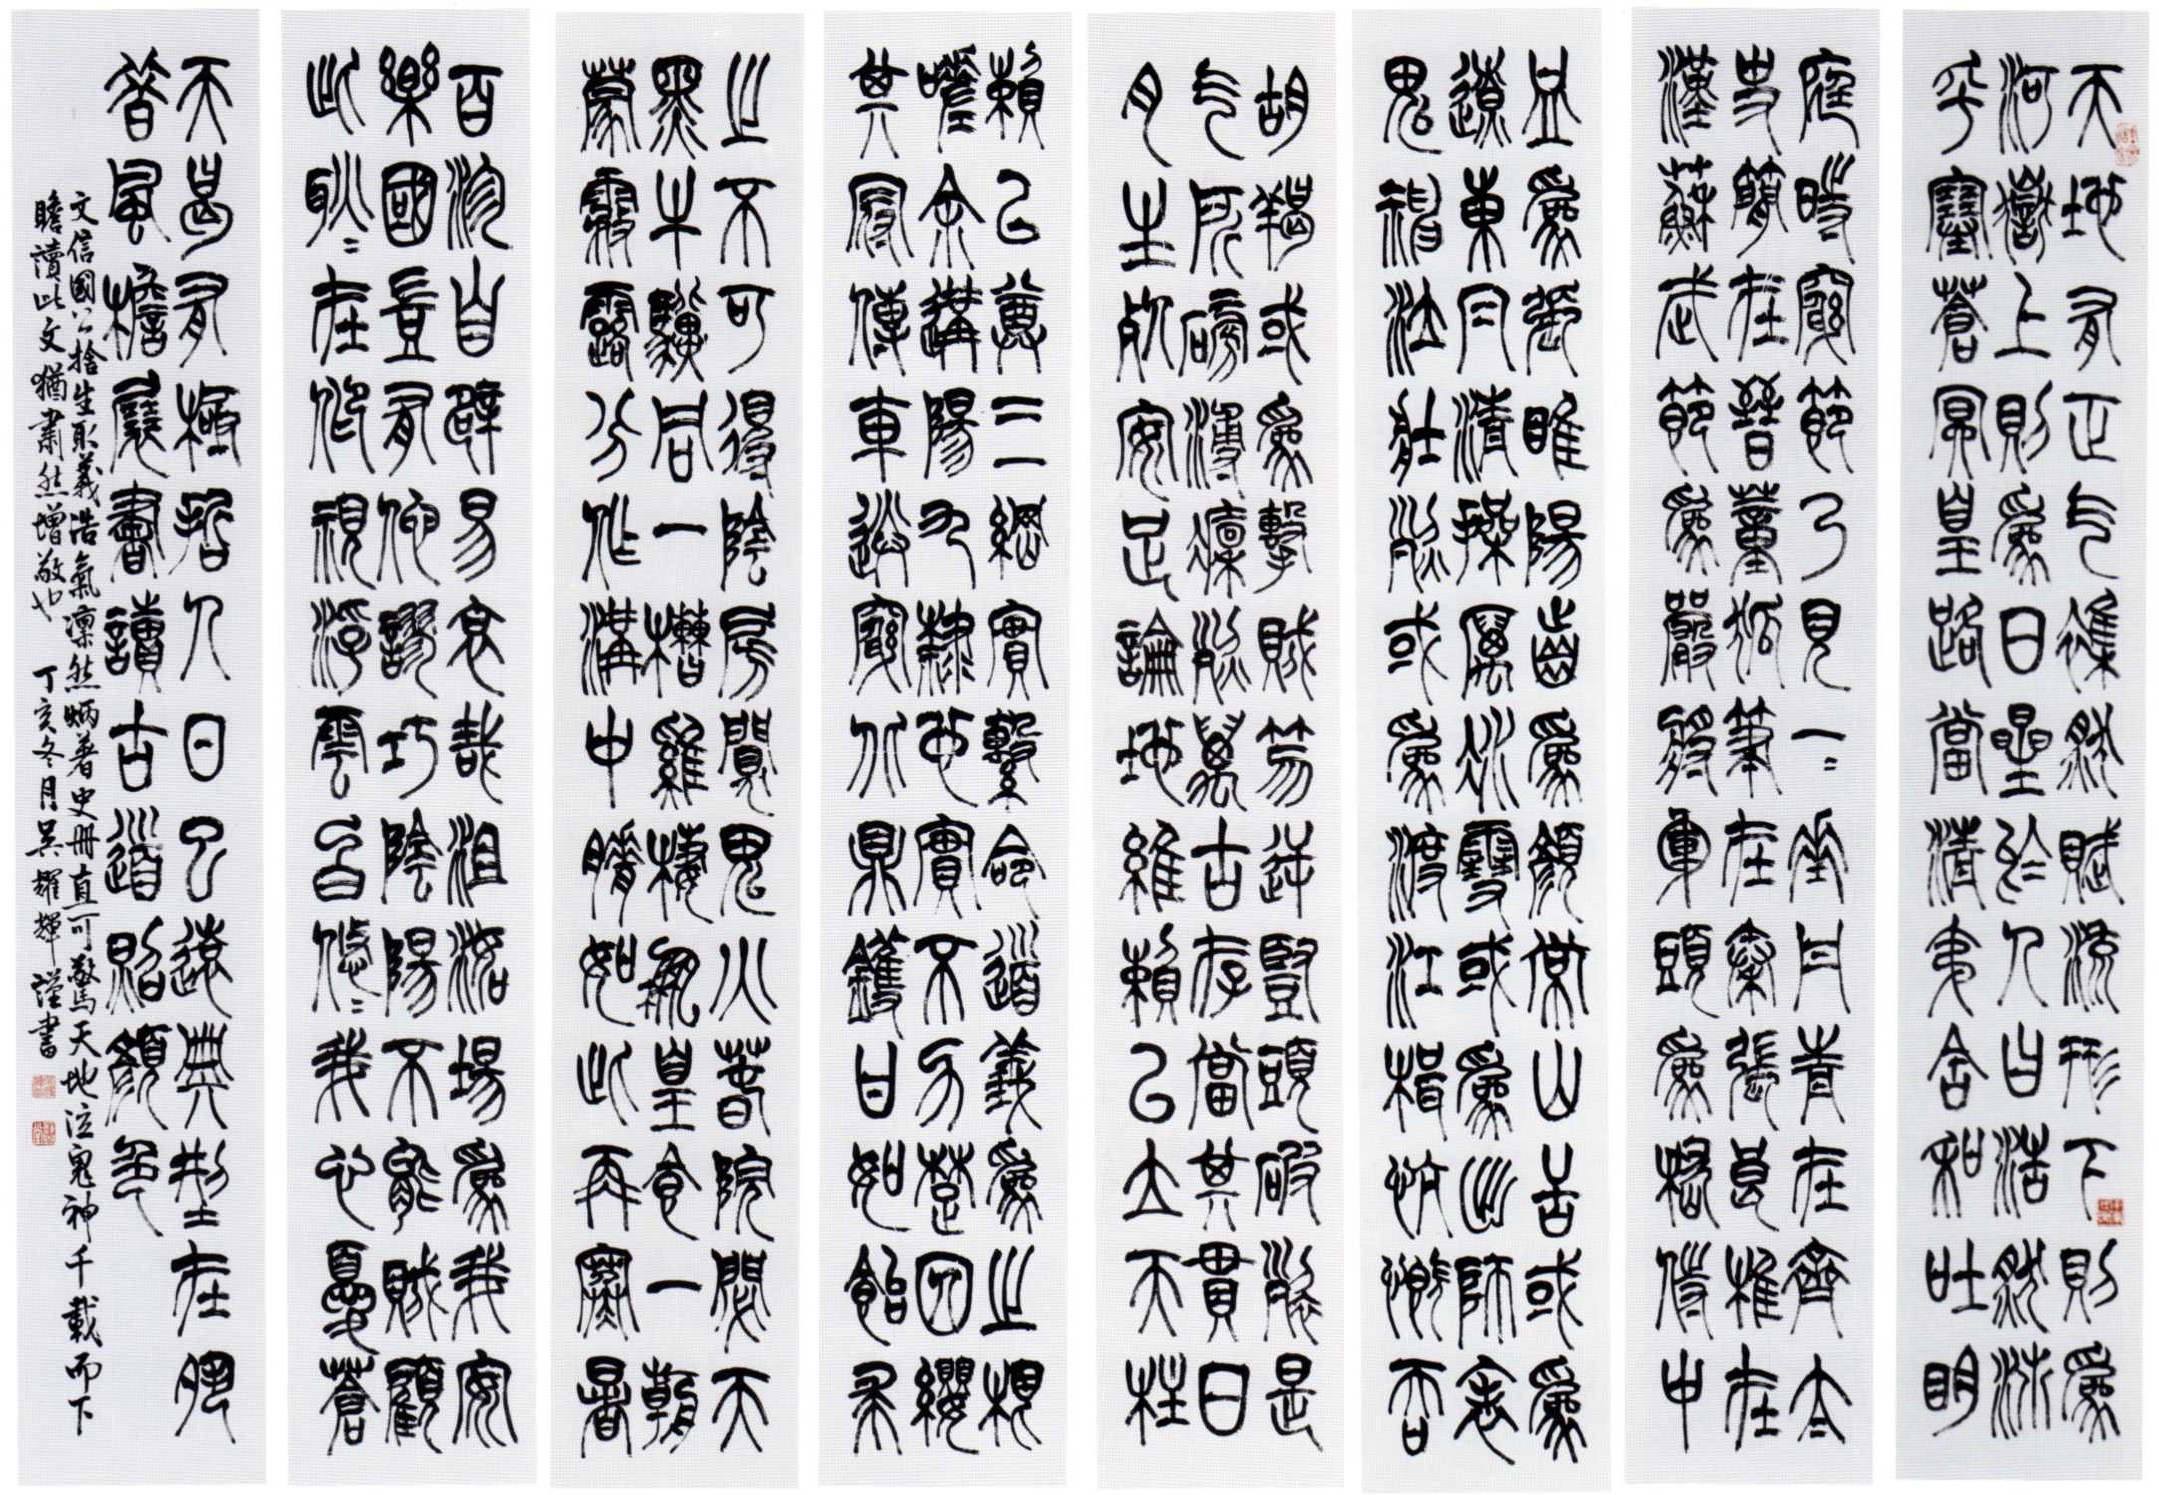 天地有正气雜然賦流形下則為
河嶽上則為日星於人曰浩然沛
乎塞蒼冥皇路當清夷含和吐明
庭時窮節乃見一〻垂丹青在齊太
史簡在晉董狐筆在秦張良椎在
漢蘇武節為嚴將軍頭為嵇侍中
血為張睢陽齒為顏常山舌或為
遼東帽清操厲冰雪或為出師表
鬼神泣壯烈或為渡江楫慷慨吞
胡羯或為擊賊笏逆豎頭破裂是
气所磅礴凜烈萬古存當其貫日
月生死安足論地維賴以立天柱
賴以尊三綱實繫命道義為之根
嗟余遘陽九隸也實不力楚囚纓
其冠傳車送窮北鼎鑊甘如飴求
之不可得陰房闃鬼火春院閟天
黑牛驥同一槽雞棲鳳皇食一朝
蒙霧露分作溝中瘠如此再寒暑
百沴自辟易哀哉沮洳場為我安
樂國豈有他繆巧陰陽不能賊顧
此耿〻在仰視浮雲白悠〻我心憂蒼
天曷有極哲人日已遠典型在夙
昔風檐展書讀古道照顏色
文信國公捨生取義浩氣凜然炳著史冊直可驚天地泣鬼神千載而下
瞻讀此文猶肅然增敬也 丁亥冬月吳耀輝謹書